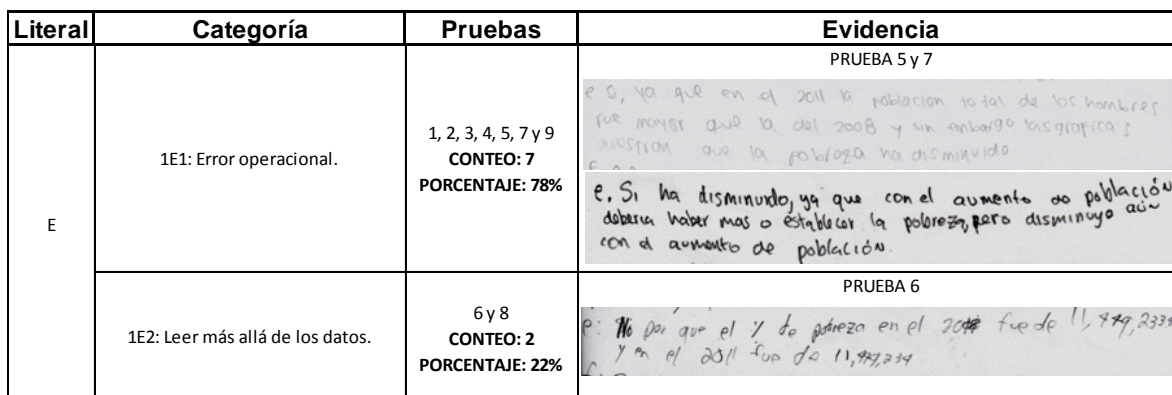 Literal Categoría Pruebas Evidencia
E
1E1: Error operacional.
1, 2, 3, 4, 5, 7 y 9
CONTEO: 7
PORCENTAJE: 78%
PRUEBA 5 y 7
e. Si, ya que en el 2011 la poblacion total de los hombres
fue mayor que la del 2008 y sin enbargo las graficas
muestran que la pobreza ha disminuido
e. Si ha disminuido, ya que con el aumento de población
deberia haber mas o establecer la pobreza, pero disminuyo aún
con el aumento de población.
1E2: Leer más allá de los datos.
6 y 8
CONTEO: 2
PORCENTAJE: 22%
PRUEBA 6
e: No por que el % de pobreza en el fue de
y en el 2011 fue de